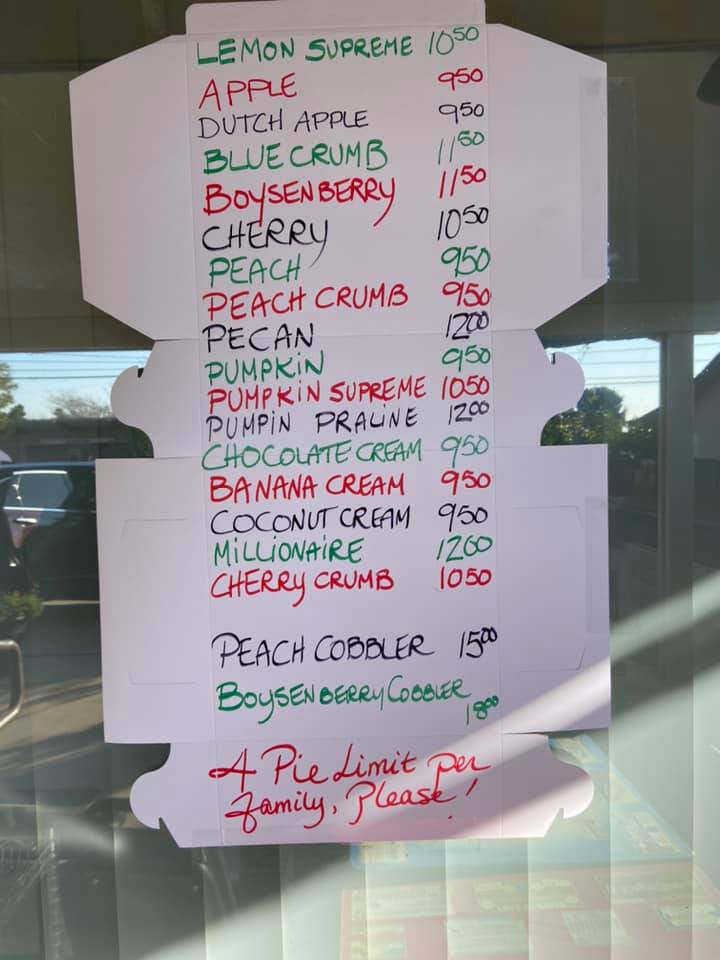 LEMON SUPREME 10 50
APPLE 9 50
DUTCH APPLE 9 50
BLUE CRUMB 11 50
BOYSENBERRY 11 50
CHERRY 10 50
PEACH 9 50
PEACH CRUMB 9 50
PECAN 12 00
PUMPKIN 9 50
PUMPKIN SUPREME 10 50
PUMPIN PRALINE 12 00
CHOCOLATE CREAM 9 50
BANANA CREAM 9 50
COCONUT CREAM 9 50
MILLIONAIRE 12 00
CHERRY CRUMB 10 50
PEACH COBBLER 15 00
BOYSENBERRY COBBLER
18 00
4 Pie Limit per
family, Please!